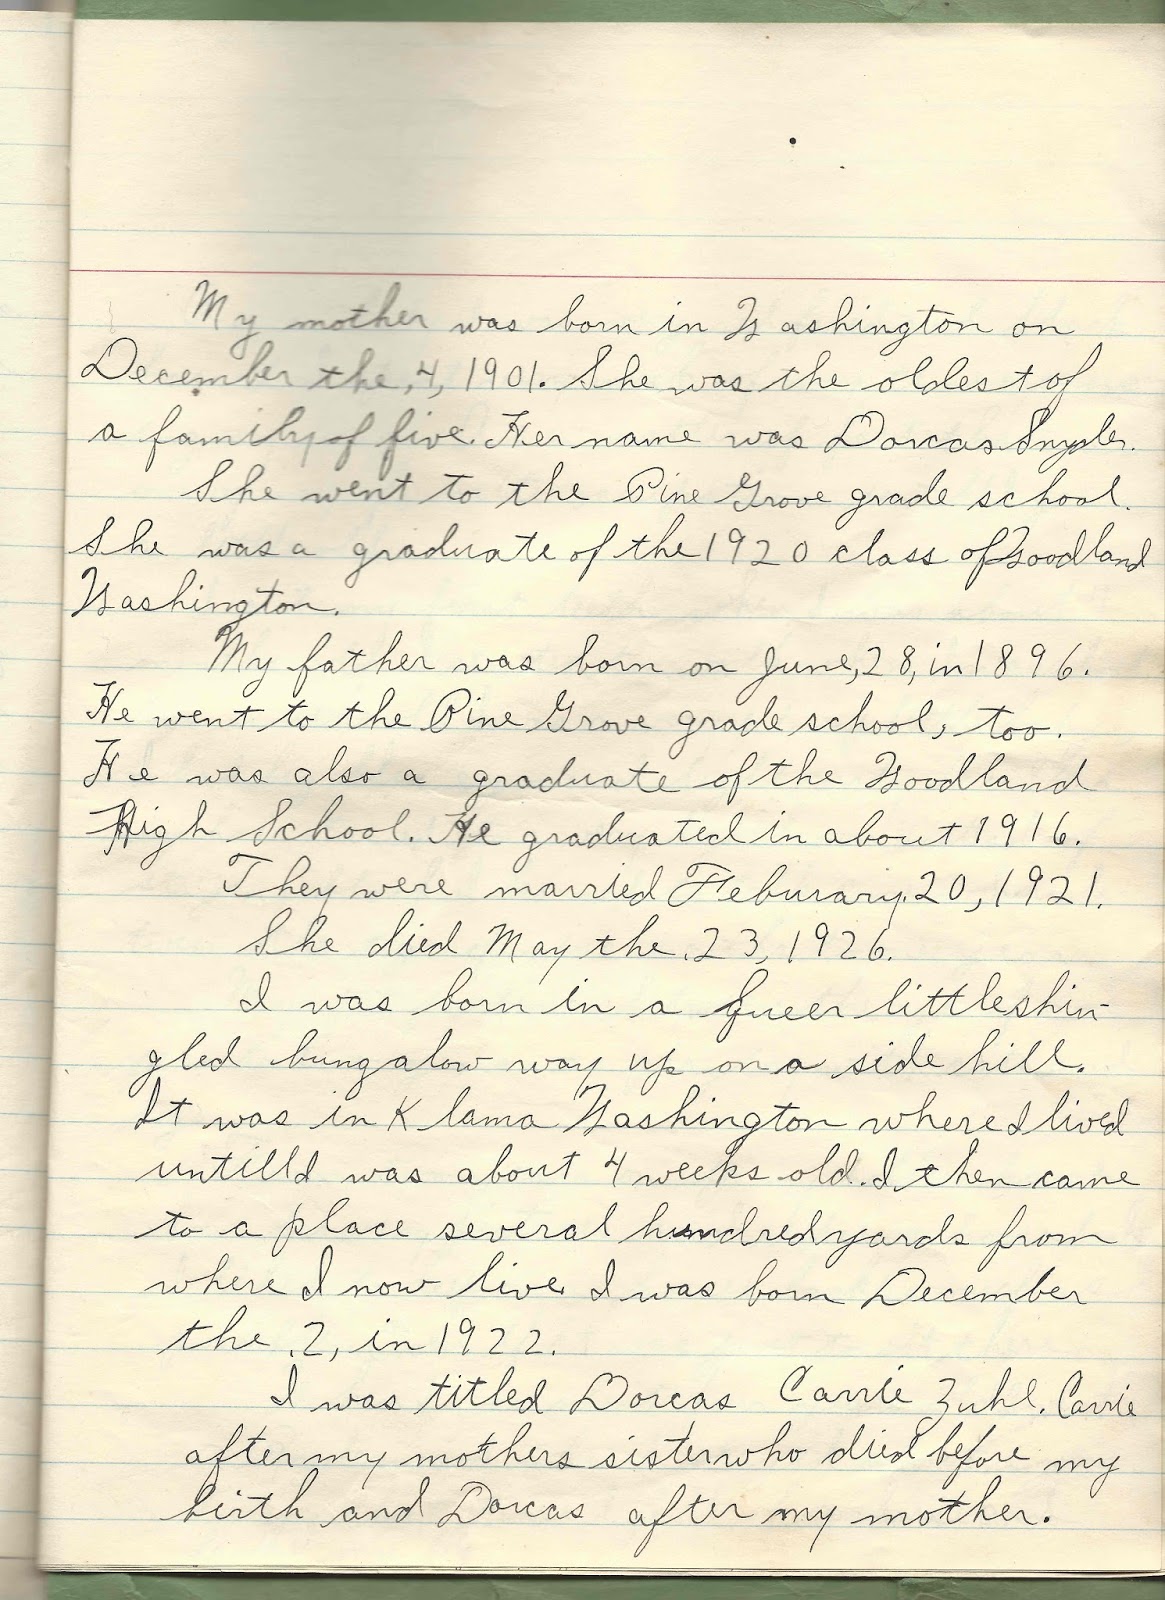 My mother was born in Washington on
December the, 4, 1901. She was the oldest of
a family of five. Her name was Dorcas Snyder.
She went to the Pine Grove grade school.
She was a graduate of the 1920 class of Woodland
Washington.
My father was born on June, 28, in 1896.
He went to the Pine Grove grade school, too.
He was also a graduate of the Woodland
High School. He graduated in about 1916.
They were married Feburary. 20, 1921.
She died May the. 23, 1926.
I was born in a queer little shin-
gled bungalow way up on a side hill.
It was in Klama Washington where I lived
untill I was about 4 weeks old. I then came
to a place several hundred yards from
where I now live. I was born December
the. 2, in 1922.
I was titled Dorcas Carrie Zuhl. Carrie
after my mothers sister who died before my
birth and Dorcas after my mother.